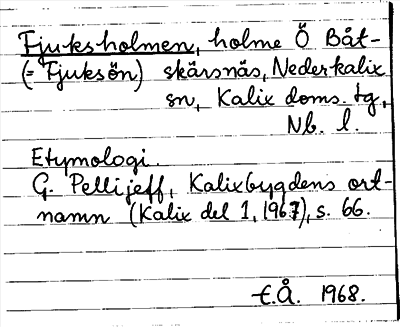 Fjuksholmen, holme Ö Båt-
(= Fjuksön) skärsnäs, Nederkalix
sn, Kalix doms. tg,
Nb. l.
Etymologi.
G. Pellijeff, Kalixbygdens ort-
namn (Kalix del 1, 1967), s. 66.
E.Å. 1968.